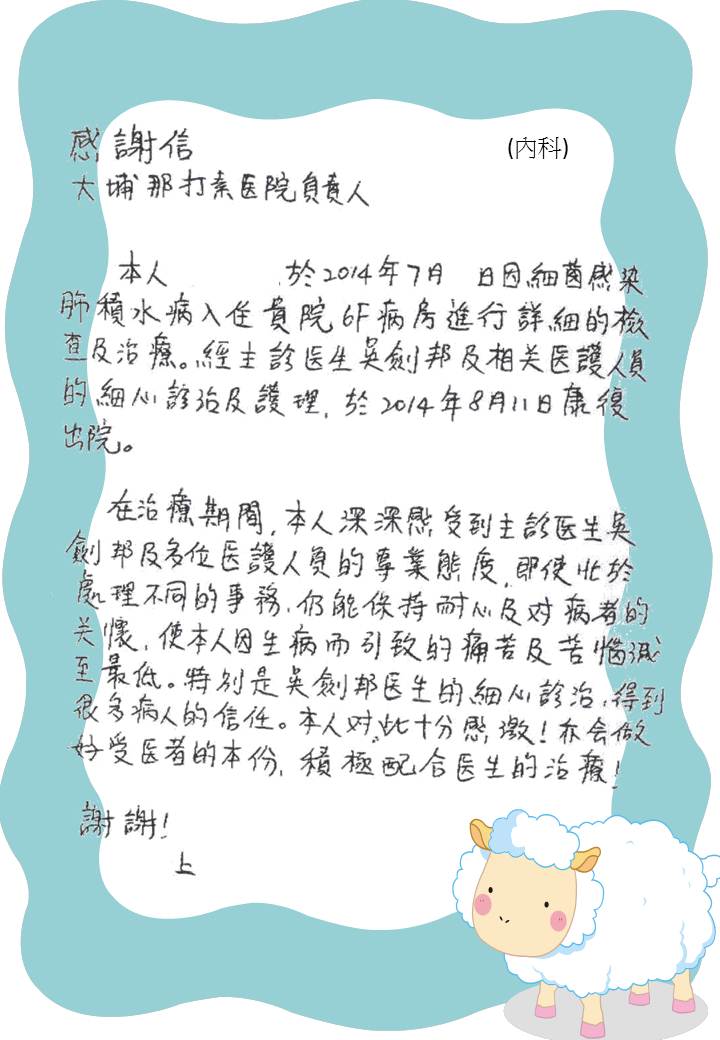 感謝信
(內科)
大埔那打素医院負責人
本人 於2014年7月 日因細菌感染
肺積水病入住貴院6F病房進行詳細的檢
查及治療。經主診医生吳劍邦及相关医護人員
的細心診治及護理,於2014年8月11日康復
出院。
在治療期間,本人深深感受到主診医生吳
劍邦及多位医護人員的專業態度,即使忙於
處理不同的事務,仍能保持耐心及对病者的
关懷,使本人因生病而引致的痛苦及苦惱減
至最低。特別是吳劍邦医生的細心診治,得到
很多病人的信任。本人对此十分感激!亦会做
好受医者的本份,積極配合医生的治療!
謝謝!
上